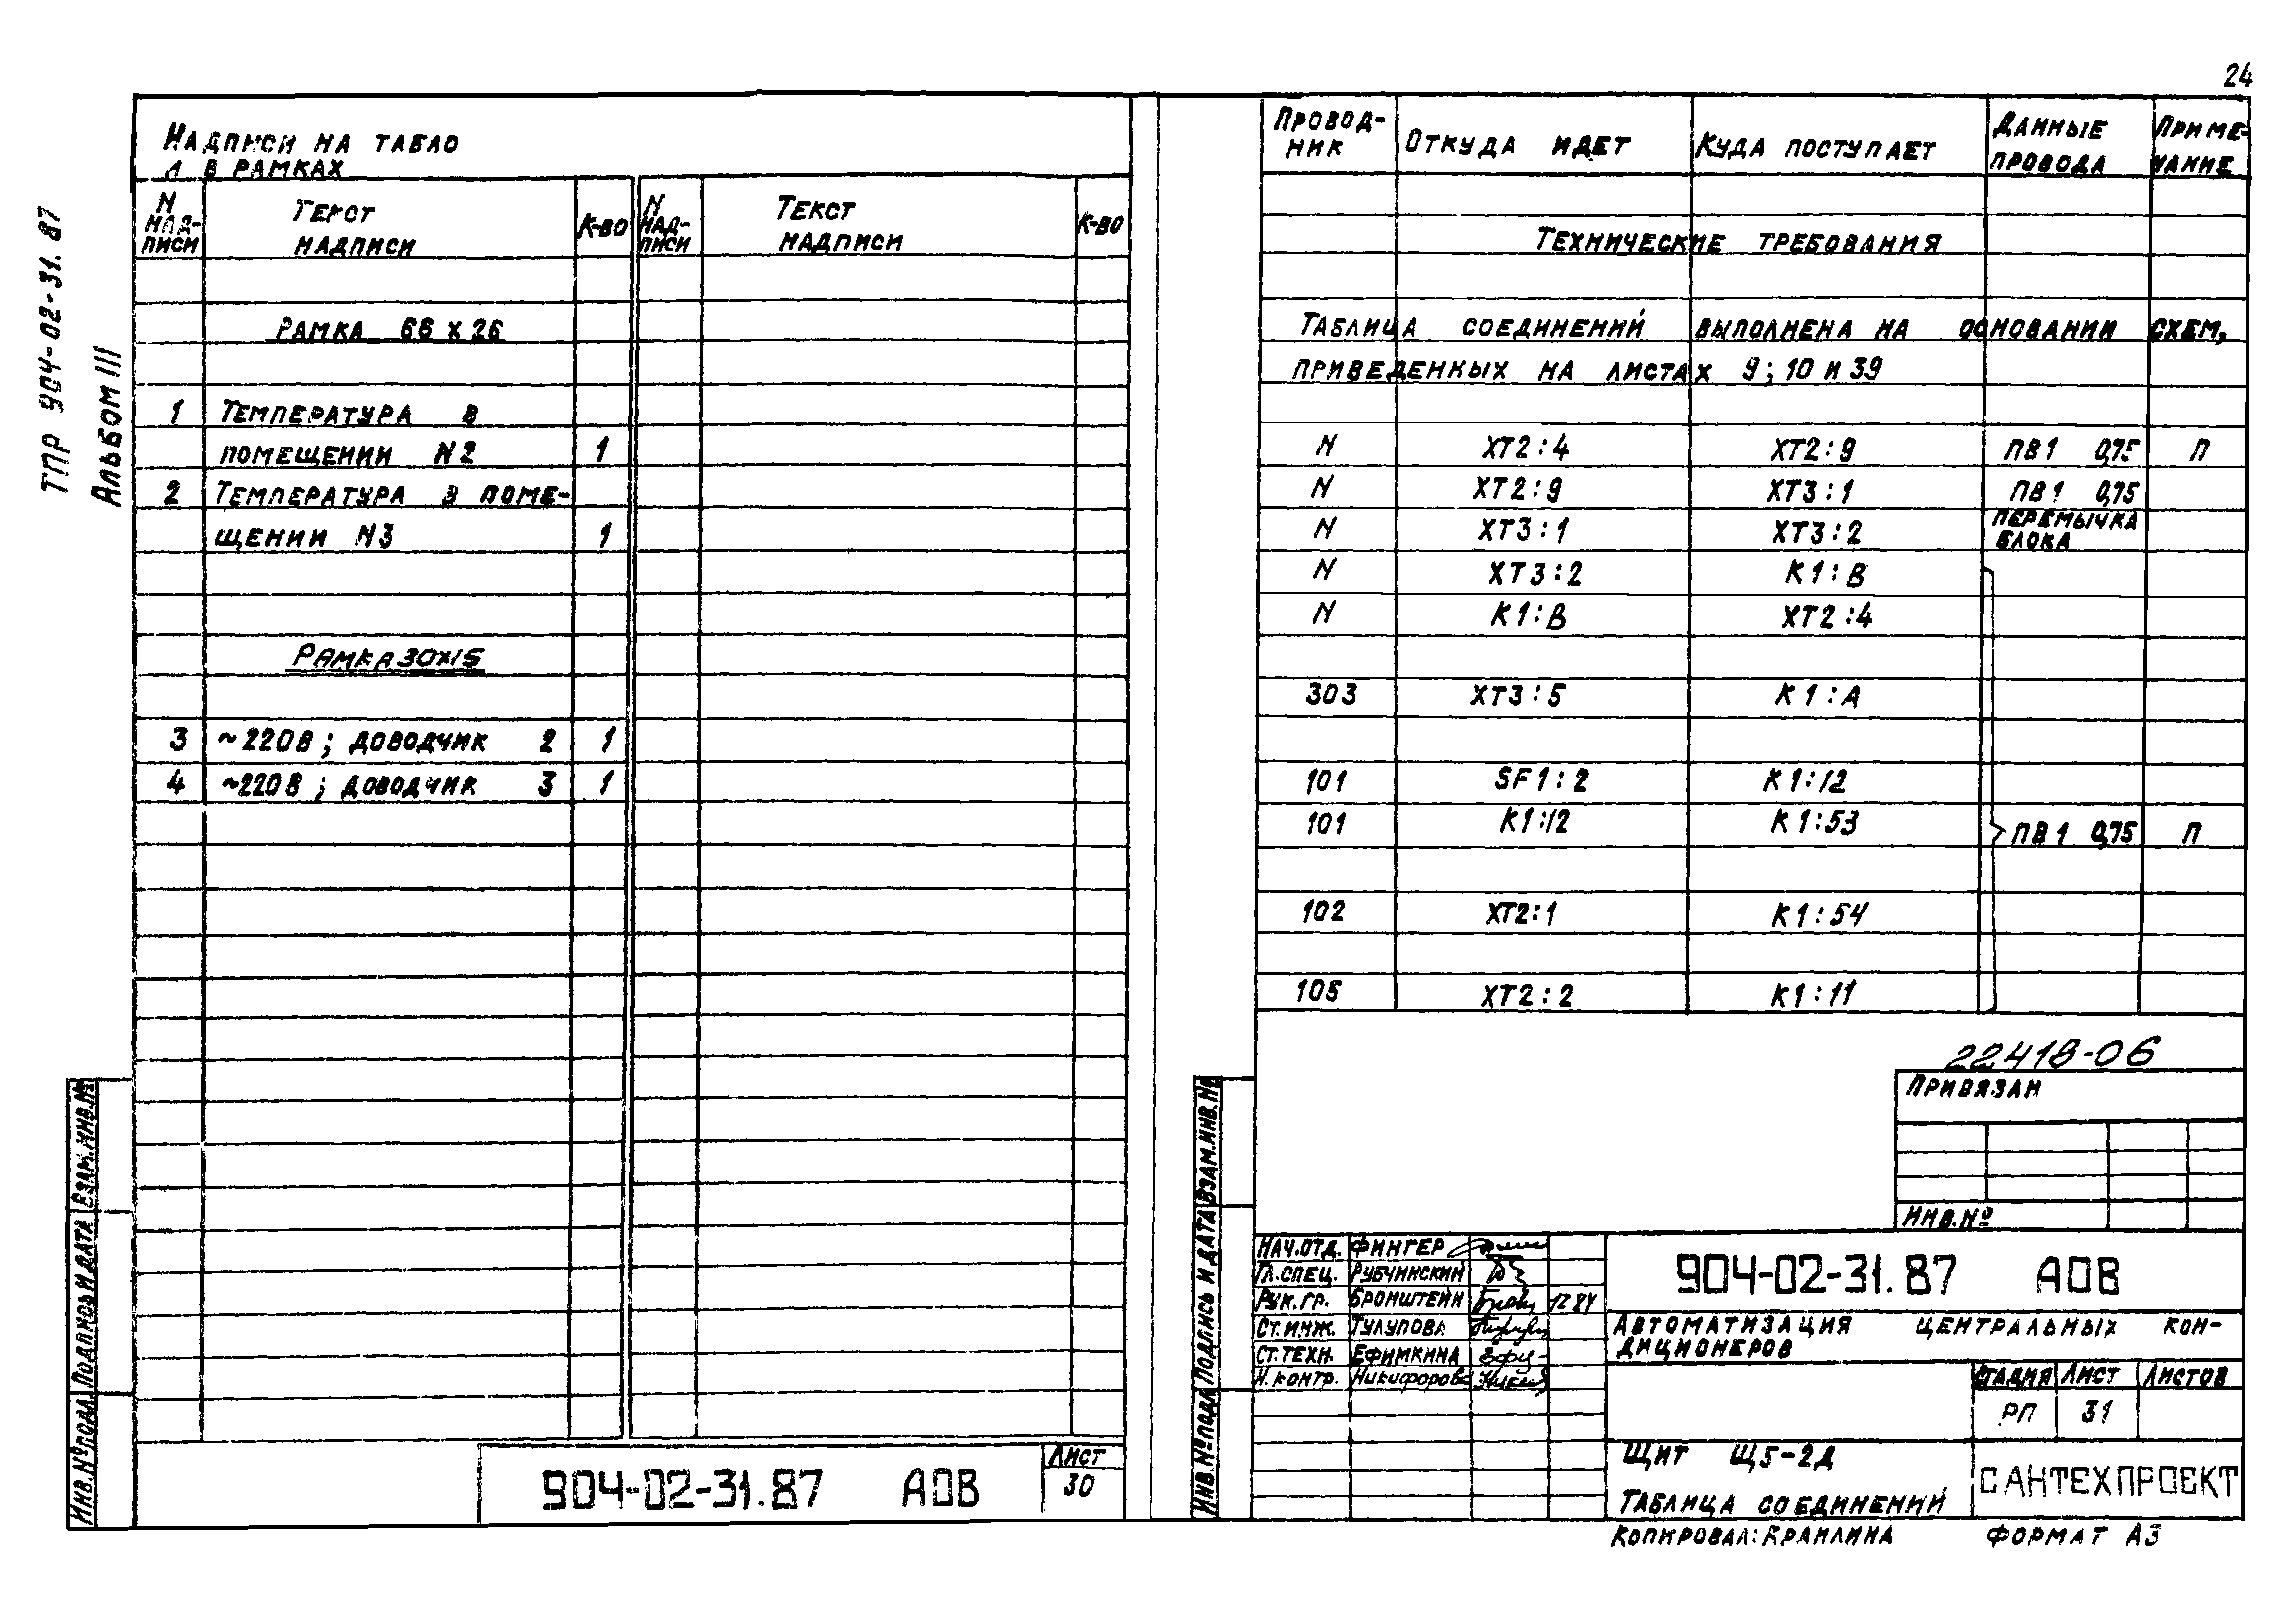 24
ТПР 904-02-31.87
Альбом III
Надписи на табло
и в рамках
N надписи Текст надписи К-во N надписи Текст надписи К-во
Рамка 66 х 26
1 Температура в
помещении N2 1
2 Температура в поме-
щении N3 1
Рамка 30х15
3 ~220В; доводчик 2 1
4 ~220В; доводчик 3 1
904-02-31.87 АОВ
Лист
30
Инв.№подл Подпись и дата Взам.инв.№
Провод-
ник Откуда идет Куда поступает Данные
провода Приме-
чание
Технические требования
Таблица соединений выполнена на основании схем,
приведенных на листах 9; 10 и 39
N ХТ2:4 ХТ2:9 ПВ1 0,75 П
N ХТ2:9 ХТ3:1 ПВ1 0,75
N ХТ3:1 ХТ3:2 перемычка
блока
N ХТ3:2 К1:В
N К1:В ХТ2:4
303 ХТ3:5 К1:А
101 SF1:2 К1:12
101 К1:12 К1:53 ПВ1 0,75 П
102 ХТ2:1 К1:54
105 ХТ2:2 К1:11
22418-06
Привязан
Инв.№
Инв.№подл Подпись и дата Взам.инв.№
Нач.отд. Фингер
Гл.спец. Рубчинский
Рук.гр. Бронштейн
Ст.инж. Тулупова
Ст.техн. Ефимкина
Н.контр. Никифорова
904-02-31.87 АОВ
Автоматизация центральных кон-
диционеров
Стадия Лист Листов
РП 31
Щит Щ5-2Д
Таблица соединений
САНТЕХПРОЕКТ
Копировал: Формат А3